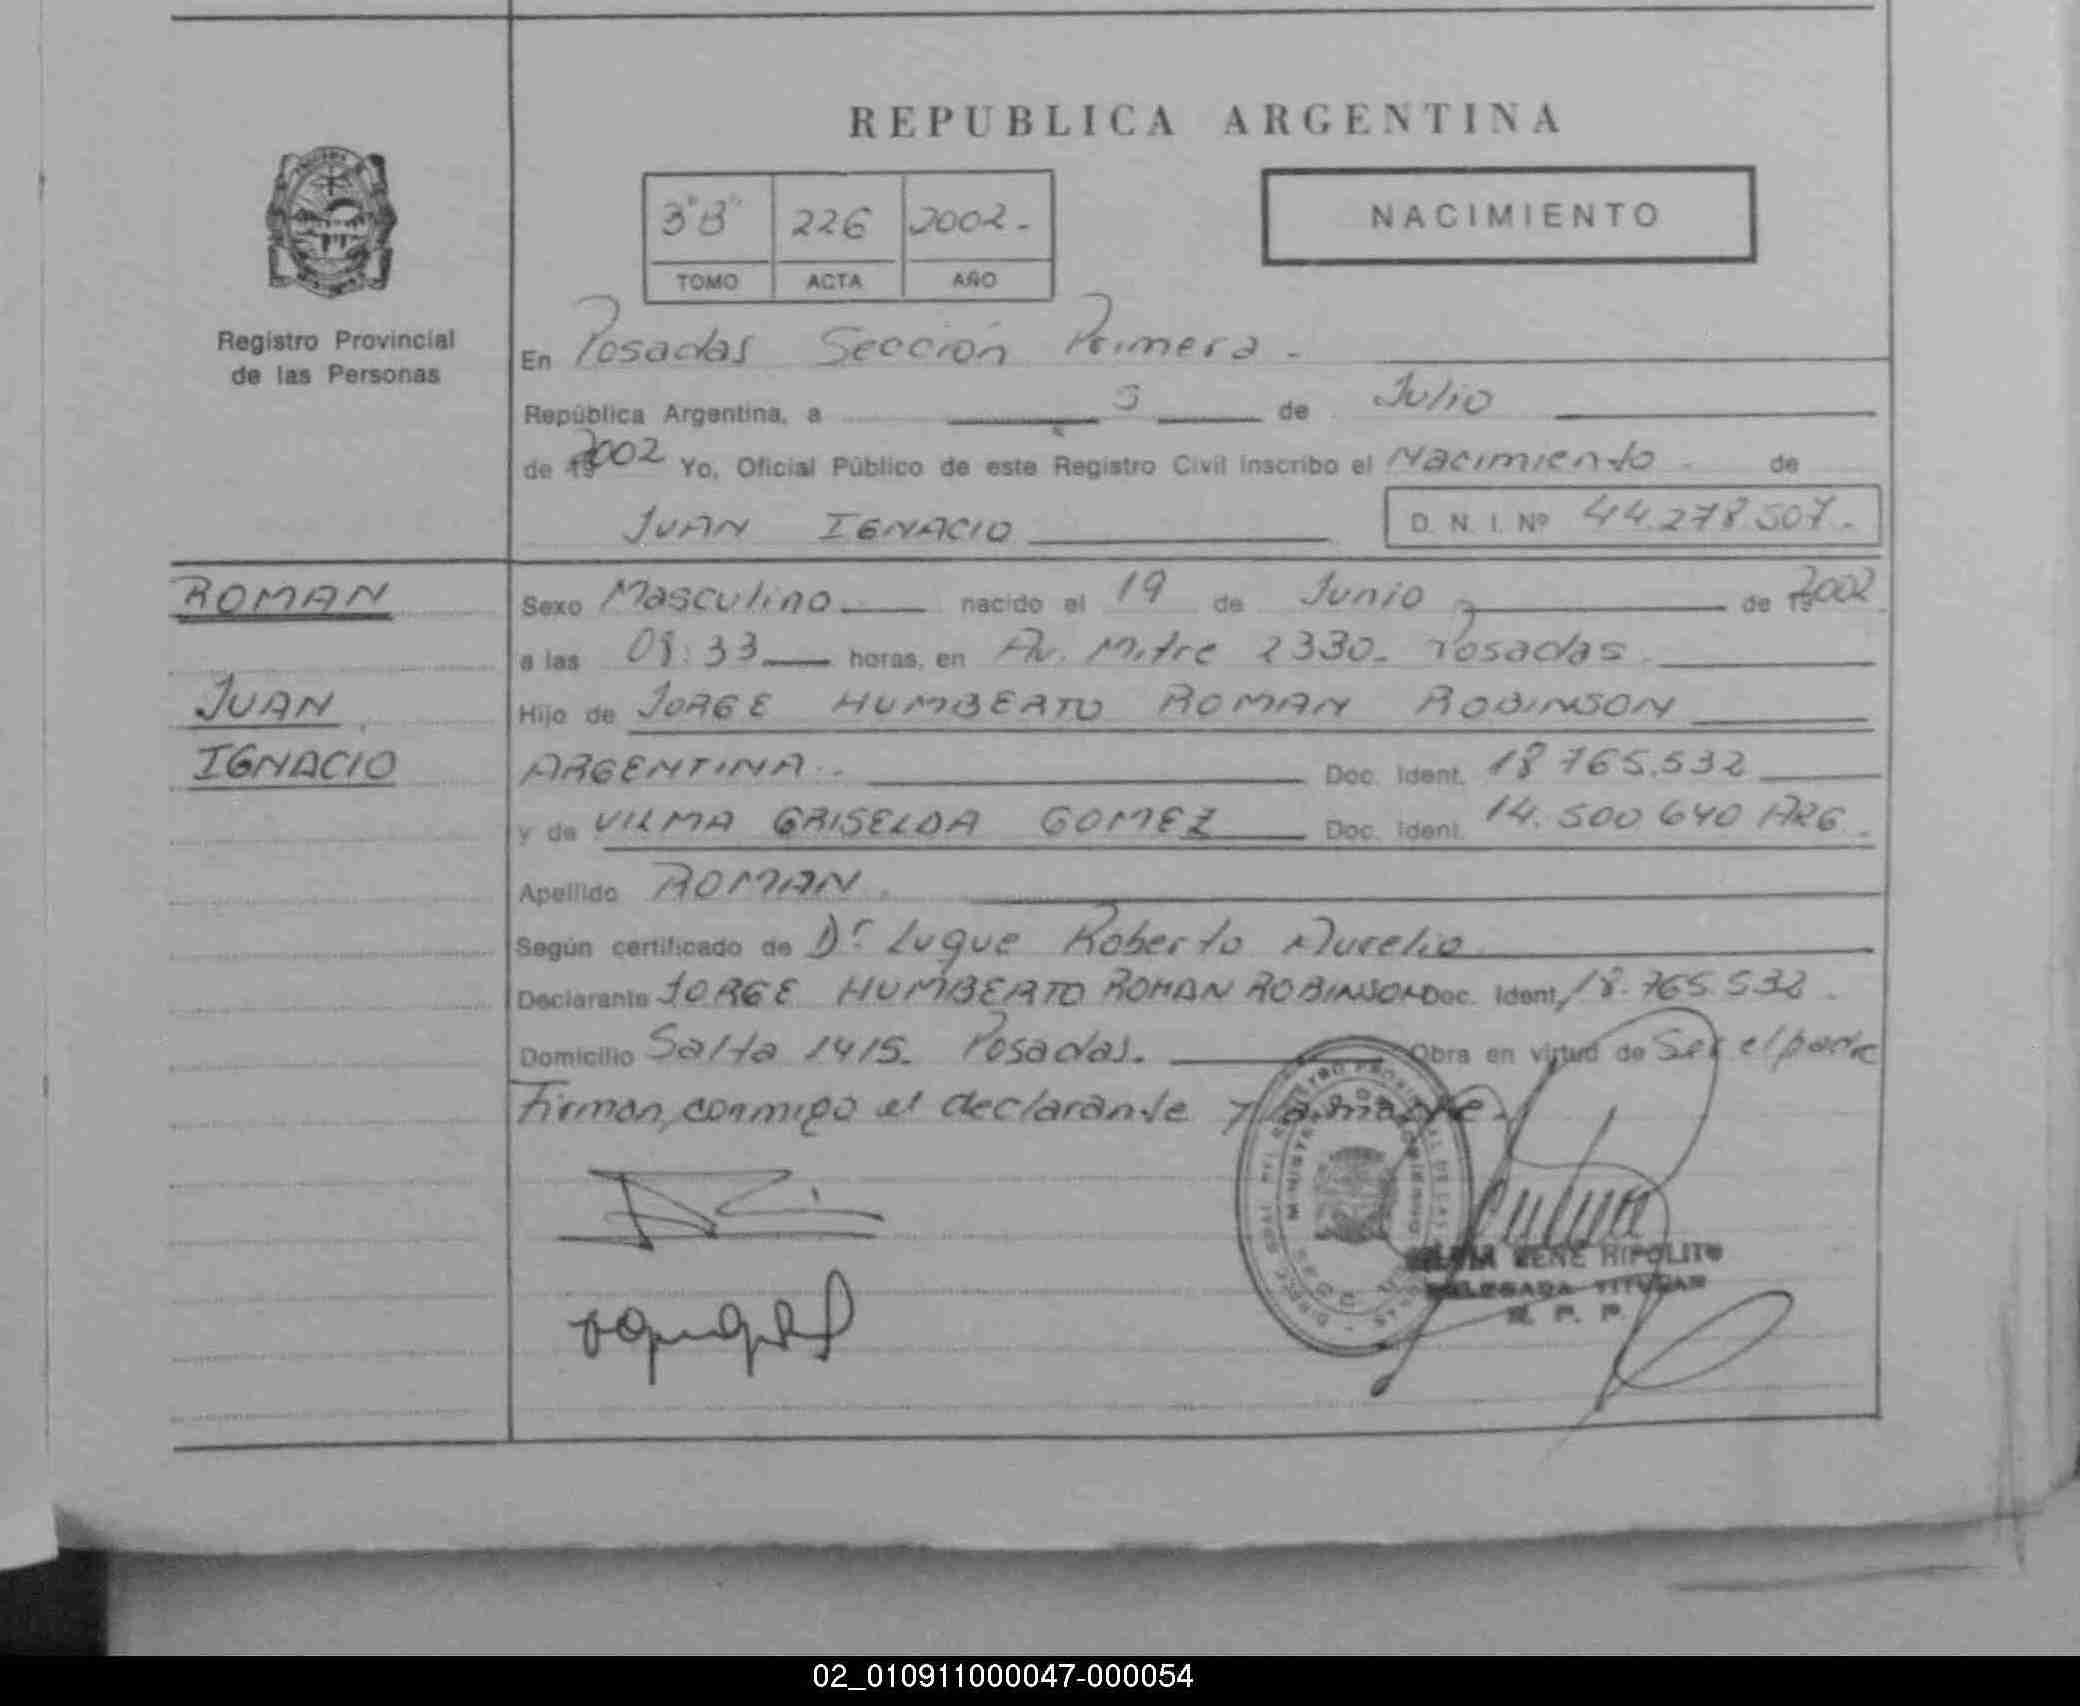 REPUBLICA ARGENTINA
3"B" 226 2002.-
TOMO ACTA AÑO
NACIMIENTO
Registro Provincial
de las Personas
En Posadas Sección Primera.-
República Argentina, a de Julio
de 19 2002 Yo, Oficial Público de este Registro Civil inscribo el Nacimiento de
JUAN IGNACIO D. N. I. Nº 44.278.507.-
ROMAN
Sexo Masculino nacido el 19 de Junio de 19 2002
a las 08:33 horas, en Av. Mitre 2330- Posadas.
JUAN
Hijo de JORGE HUMBERTO ROMAN ROBINSON
IGNACIO
ARGENTINA.- Doc. Ident. 18 765.532
y de VILMA GRISELDA GOMEZ Doc. Ident. 14.500 640 ARG.
Apellido ROMAN.
Según certificado de Dr Luque Roberto Aurelio
Declarante JORGE HUMBERTO ROMAN ROBINSON Doc. Ident. 18.765.532.
Domicilio Salta 1415. Posadas. Obra en virtud de Ser el padre
Firman, conmigo el declarante y la madre.
RENE HIPOLITO
DELEGADA TITULAR
R. P. P.
02_010911000047-000054